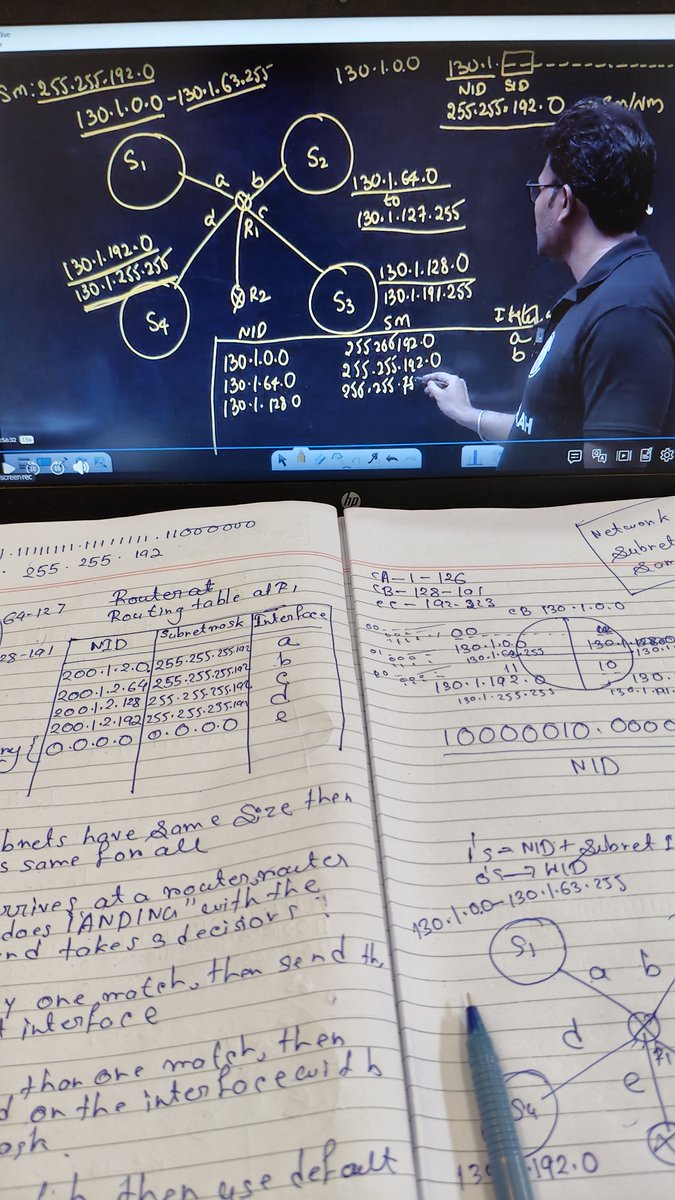 Sm: 255.255.192.0
130.1.0.0 - 130.1.63.255
130.1.0.0
130.1.
NID SID
255.255.192.0
S1
S2
a
b
d
c
R1
130.1.64.0
to
130.1.127.255
130.1.192.0
130.1.255.255
130.1.128.0
130.1.191.255
S4
R2
S3
NID
SM
130.1.0.0
130.1.64.0
130.1.128.0
255.255.192.0
255.255.192.0
a
b
hp
255.255.192
64-127
Router at
Routing table at R1
NID Subnetmask Interface
200.1.2.0 255.255.255.192 a
200.1.2.64 255.255.255.192 b
200.1.2.128 255.255.255.192 c
200.1.2.192 255.255.255.192 d
0.0.0.0 0.0.0.0 e
bnets have Same Size then
s same for all
rrives at a router, router
does "ANDING" with the
nd takes 3 decisions :
y one match, then send th
t interface
than one match, then
d on the interface with
ask.
then use default
Network
Subnet
CA-1-126
CB-128-191
CC-192-223
CB 130.1.0.0
00
130.1.0.0
130.1.63.255
11
10
130.1.192.0
130.1.255.255
10000010.0000
NID
1's → NID + Subnet I
0's → HID
130.1.0.0-130.1.63.255
S1
a
b
d
R1
e
S4
192.0